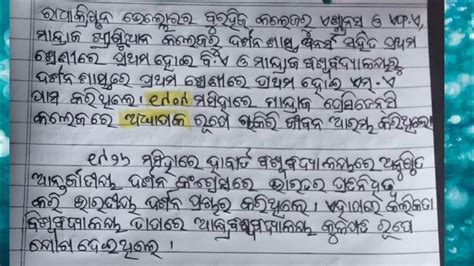 ରାଧାକ୍ରିଷ୍ନନ ଭେଲ୍ଲୋରର ବୁରହିଜ କଲେଜରୁ ଏଣ୍ଟ୍ରାନ୍ସ ଓ ଏଫ.ଏ,
ମାନ୍ଦ୍ରାଜ ଖ୍ରୀଷ୍ଟିଆନ କଲେଜରୁ ଦର୍ଶନ ଶାସ୍ତ୍ର ସହିତ ପ୍ରଥମ
ଶ୍ରେଣୀରେ ପ୍ରଥମ ହୋଇ ବି.ଏ ଓ ମାନ୍ଦ୍ରାଜ ବିଶ୍ୱବିଦ୍ୟାଳୟରୁ
ଦର୍ଶନ ଶାସ୍ତ୍ରରେ ପ୍ରଥମ ଶ୍ରେଣୀରେ ପ୍ରଥମ ହୋଇ ଏମ୍-ଏ
ପାସ କରିଥିଲେ। ୧୯୦୯ ମସିହାରେ ମାନ୍ଦ୍ରାଜ ପ୍ରେସିଡେନସି
କଲେଜରେ ଅଧ୍ୟାପକ ରୂପେ ଚାକିରି ଜୀବନ ଆରମ୍ଭ କରିଥିଲେ।
୧୯୨୬ ମସିହାରେ ହାବାର୍ଡ ବିଶ୍ୱବିଦ୍ୟାଳୟରେ ଅନୁଷ୍ଠିତ
ଆନ୍ତର୍ଜାତୀୟ ଦର୍ଶନ କଂଗ୍ରେସରେ ଭାରତର ପ୍ରତିନିଧିତ୍ୱ
କରି ଭାରତୀୟ ଦର୍ଶନ ପ୍ରଚାର କରିଥିଲେ। ଏହାପରେ କଲିକତା
ବିଶ୍ୱବିଦ୍ୟାଳୟ ଛାଡି ଆନ୍ଧ୍ରବିଶ୍ୱବିଦ୍ୟାଳୟର କୁଳପତି ରୂପେ
ଯୋଗ ଦେଇଥିଲେ।